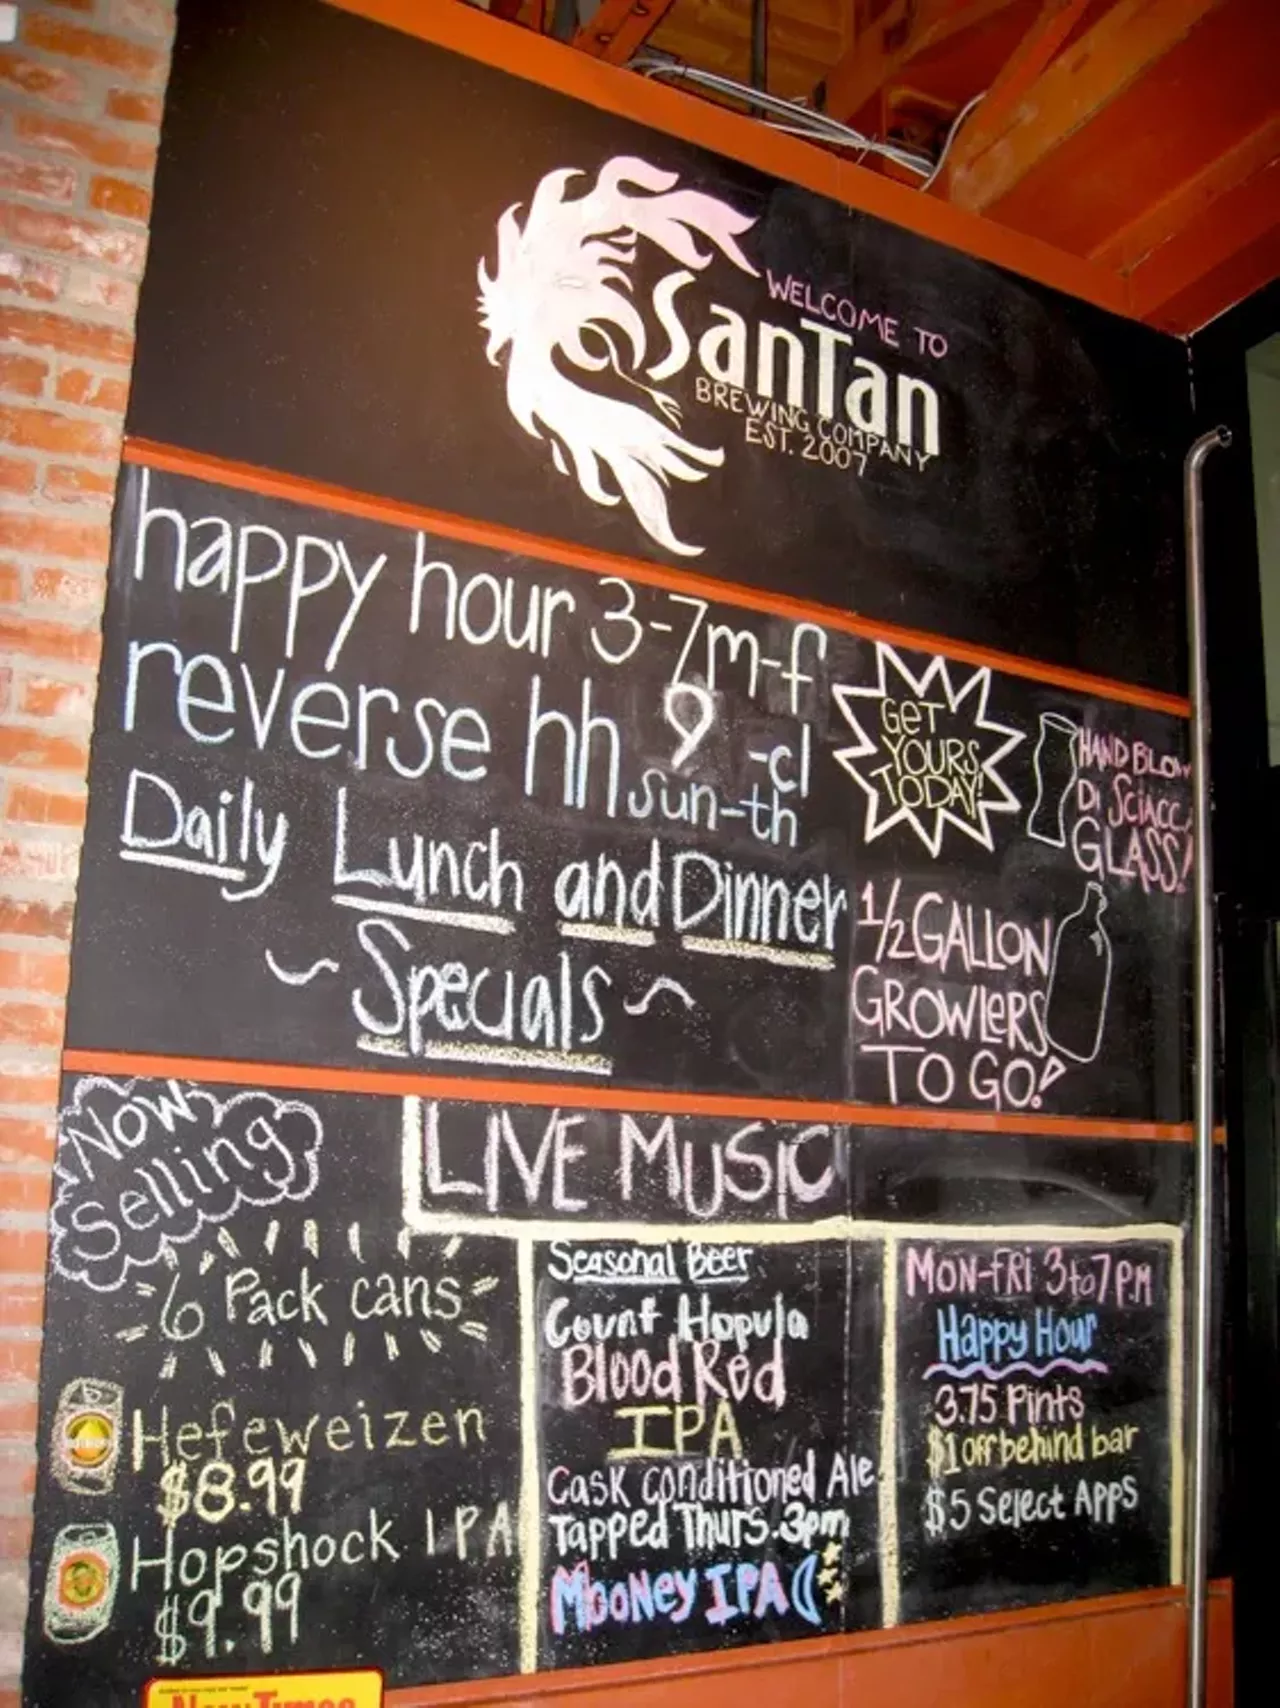 WELCOME TO
SanTan
BREWING COMPANY
EST. 2007
happy hour 3-7 m-f
reverse hh 9 -cl
sun-th
Daily Lunch and Dinner
~ Specials ~
GET
YOURS
TODAY!
HAND BLOWN
Di SCIACCA
GLASS!
1/2 GALLON
GROWLERS
TO GO!
Now
Selling
6 Pack cans
Hefeweizen
$8.99
Hopshock IPA
$9.99
LIVE MUSIC
Seasonal Beer
Count Hopula
Blood Red
IPA
Cask conditioned Ale
Tapped Thurs. 3pm
Mooney IPA
MON-FRI 3 to 7 PM
Happy Hour
3.75 Pints
$1 off behind bar
$5 Select Apps
New Times